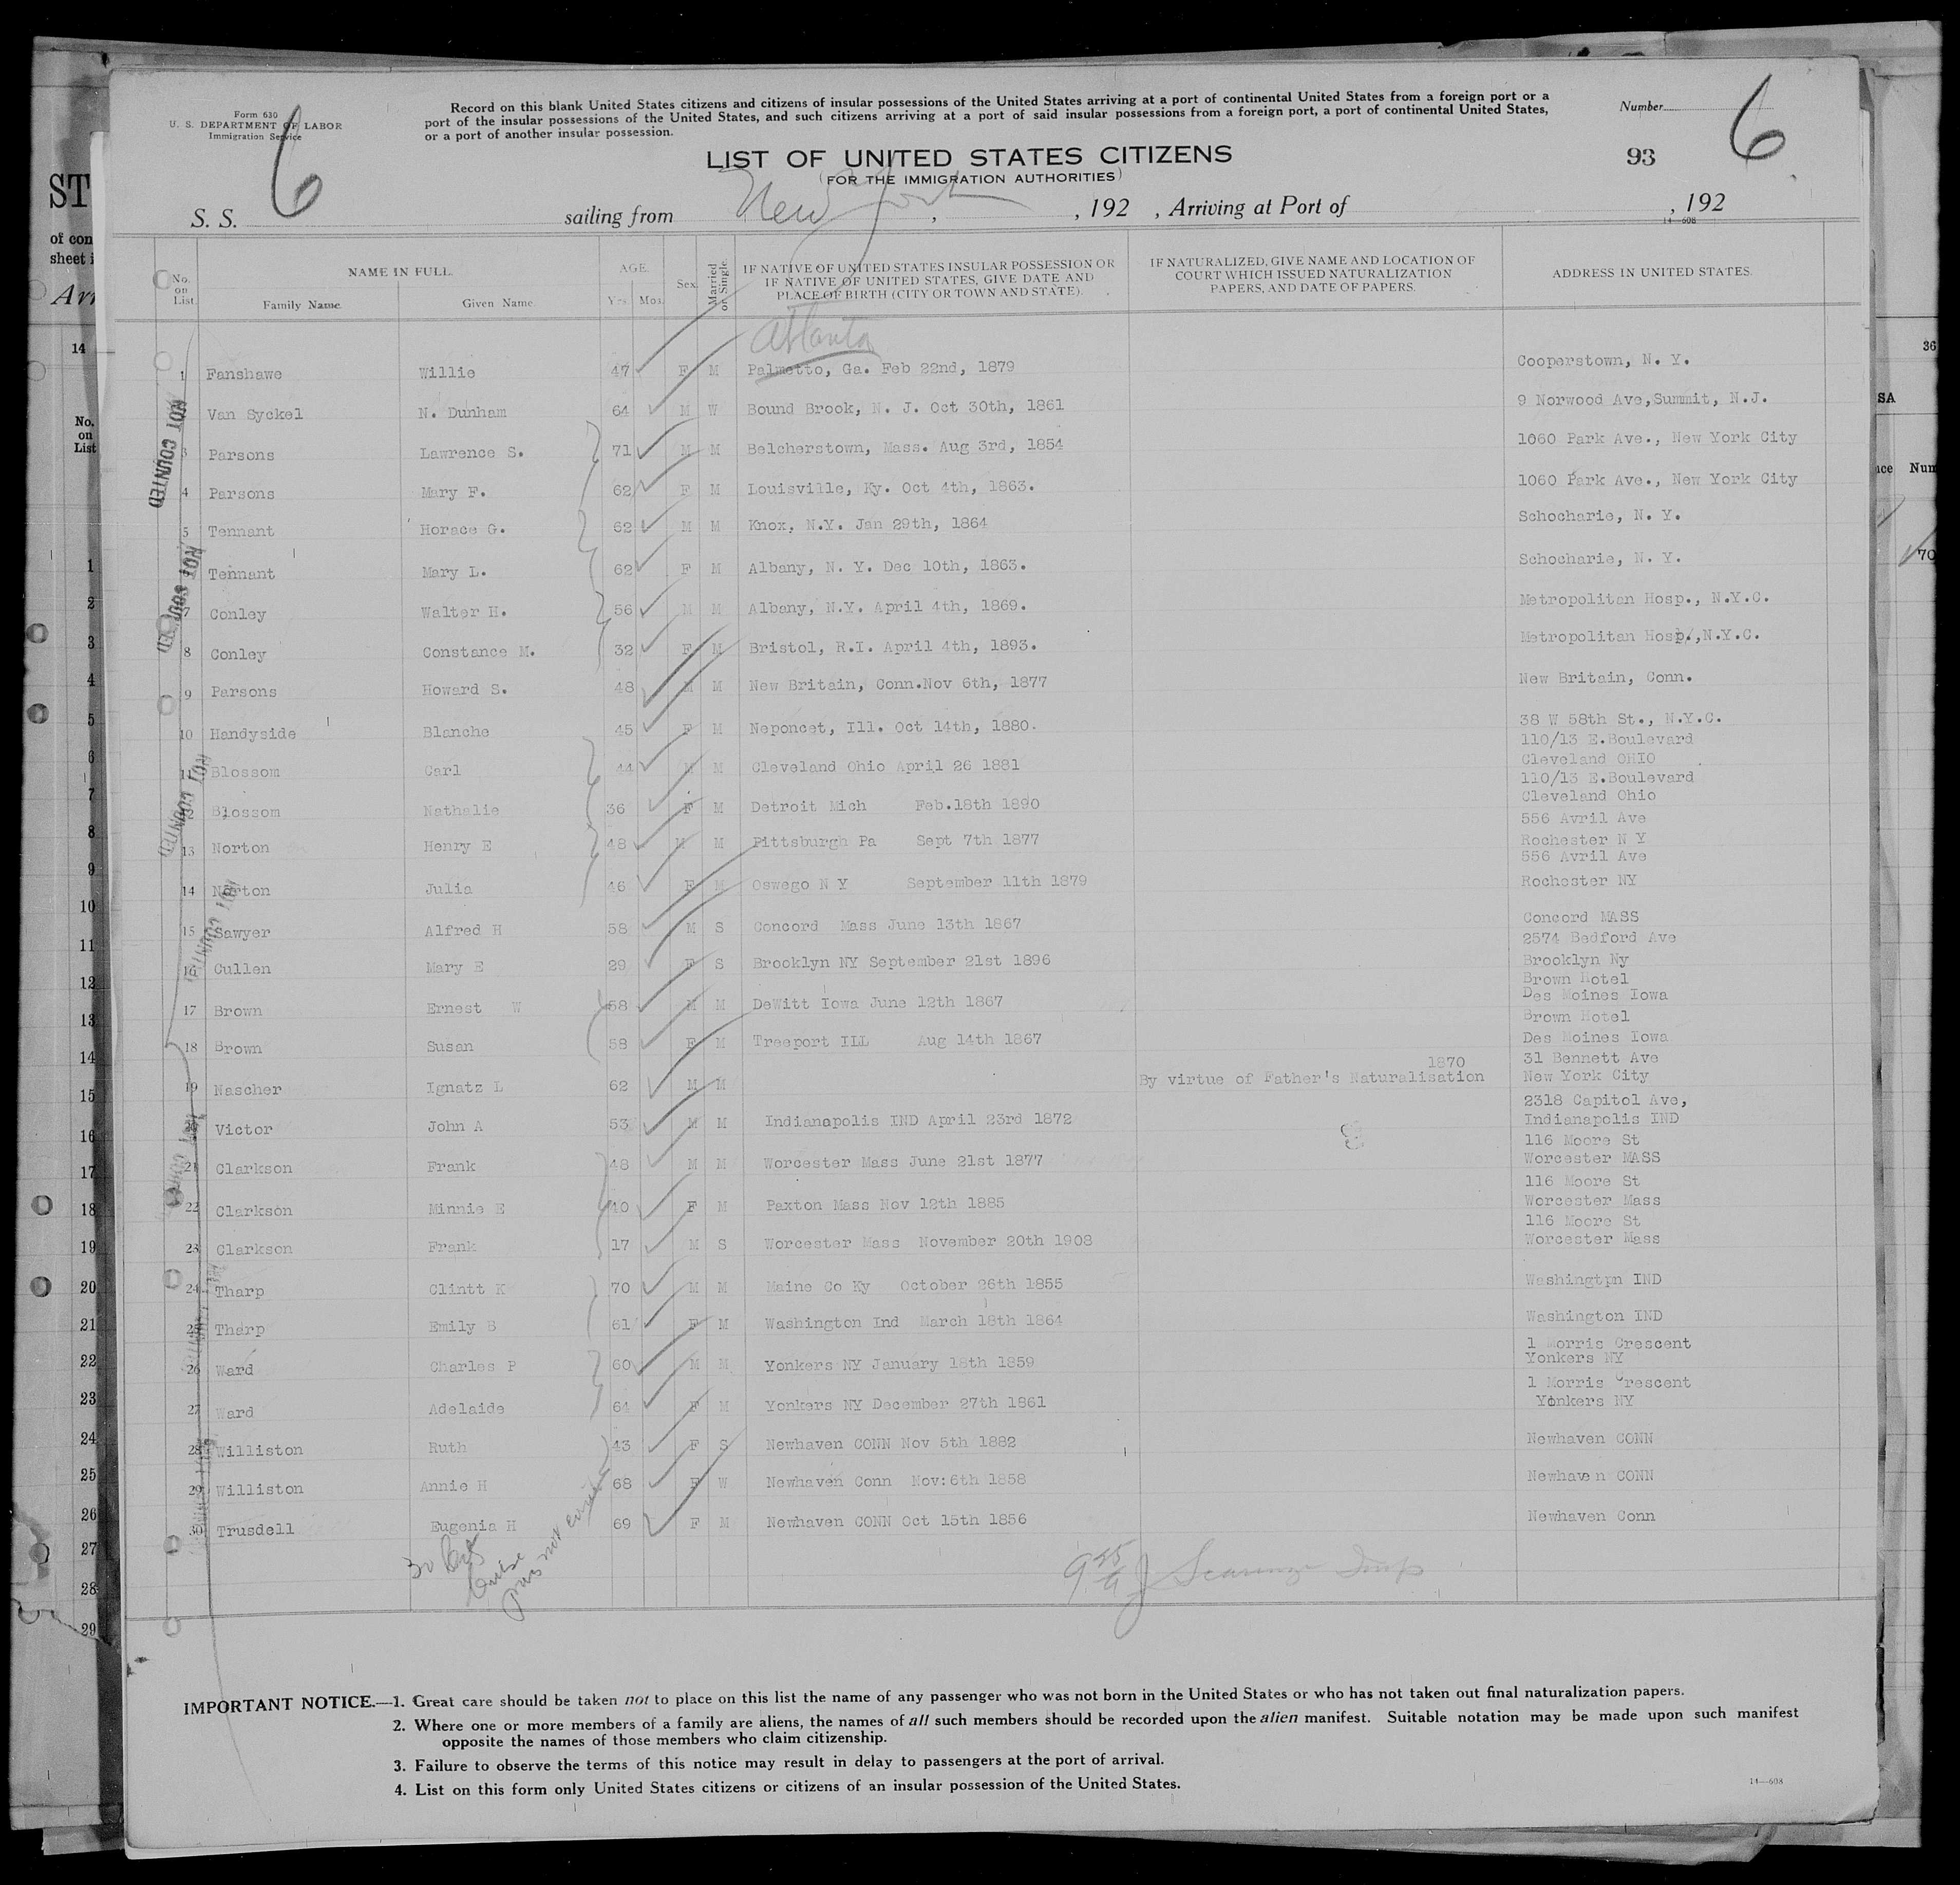 Form 630
U. S. DEPARTMENT OF LABOR
Immigration Service
6
Record on this blank United States citizens and citizens of insular possessions of the United States arriving at a port of continental United States from a foreign port or a
port of the insular possessions of the United States, and such citizens arriving at a port of said insular possessions from a foreign port, a port of continental United States,
or a port of another insular possession.
Number
6
93
LIST OF UNITED STATES CITIZENS
(FOR THE IMMIGRATION AUTHORITIES)
S. S. sailing from New York, , 192 , Arriving at Port of , 192
14—608
No. on List.
NAME IN FULL.
Family Name. Given Name.
AGE.
Yrs. Mos.
Sex.
Married or Single.
IF NATIVE OF UNITED STATES INSULAR POSSESSION OR
IF NATIVE OF UNITED STATES, GIVE DATE AND
PLACE OF BIRTH (CITY OR TOWN AND STATE).
IF NATURALIZED, GIVE NAME AND LOCATION OF
COURT WHICH ISSUED NATURALIZATION
PAPERS, AND DATE OF PAPERS.
ADDRESS IN UNITED STATES.
Atlanta
1 Fanshawe Willie 47 F M Palmetto, Ga. Feb 22nd, 1879 Cooperstown, N. Y.
Van Syckel N. Dunham 64 M W Bound Brook, N. J. Oct 30th, 1861 9 Norwood Ave,Summit, N.J.
3 Parsons Lawrence S. 71 M M Belcherstown, Mass. Aug 3rd, 1854 1060 Park Ave., New York City
4 Parsons Mary F. 62 F M Louisville, Ky. Oct 4th, 1863. 1060 Park Ave., New York City
5 Tennant Horace G. 62 M M Knox, N.Y. Jan 29th, 1864 Schocharie, N. Y.
Tennant Mary L. 62 F M Albany, N. Y. Dec 10th, 1863. Schocharie, N. Y.
7 Conley Walter H. 56 M M Albany, N.Y. April 4th, 1869. Metropolitan Hosp., N.Y.C.
8 Conley Constance M. 32 F M Bristol, R.I. April 4th, 1893. Metropolitan Hosp.,N.Y.C.
9 Parsons Howard S. 48 M M New Britain, Conn.Nov 6th, 1877 New Britain, Conn.
10 Handyside Blanche 45 F M Neponcet, Ill. Oct 14th, 1880. 38 W 58th St., N.Y.C.
110/13 E.Boulevard
11 Blossom Carl 44 M M Cleveland Ohio April 26 1881 Cleveland OHIO
110/13 E.Boulevard
12 Blossom Nathalie 36 F M Detroit Mich Feb.18th 1890 Cleveland Ohio
556 Avril Ave
13 Norton Henry E 48 M M Pittsburgh Pa Sept 7th 1877 Rochester N Y
556 Avril Ave
14 Norton Julia 46 F M Oswego N Y September 11th 1879 Rochester NY
15 Sawyer Alfred H 58 M S Concord Mass June 13th 1867 Concord MASS
2574 Bedford Ave
16 Cullen Mary E 29 F S Brooklyn NY September 21st 1896 Brooklyn Ny
Brown Hotel
17 Brown Ernest W 58 M M DeWitt Iowa June 12th 1867 Des Moines Iowa
Brown Hotel
18 Brown Susan 58 F M Treeport ILL Aug 14th 1867 Des Moines Iowa
1870 31 Bennett Ave
19 Nascher Ignatz L 62 M M By virtue of Father's Naturalisation New York City
2318 Capitol Ave,
Victor John A 53 M M Indianapolis IND April 23rd 1872 Indianapolis IND
116 Moore St
21 Clarkson Frank 48 M M Worcester Mass June 21st 1877 Worcester MASS
116 Moore St
22 Clarkson Minnie E 40 F M Paxton Mass Nov 12th 1885 Worcester Mass
116 Moore St
23 Clarkson Frank 17 M S Worcester Mass November 20th 1908 Worcester Mass
24 Tharp Clintt K 70 M M Maine Co Ky October 26th 1855 Washingtpn IND
25 Tharp Emily B 61 F M Washington Ind March 18th 1864 Washington IND
1 Morris Crescent
26 Ward Charles P 60 M M Yonkers NY January 18th 1859 Yonkers NY
1 Morris Crescent
27 Ward Adelaide 64 F M Yonkers NY December 27th 1861 Yonkers NY
28 Williston Ruth 43 F S Newhaven CONN Nov 5th 1882 Newhaven CONN
29 Williston Annie H 68 F W Newhaven Conn Nov:6th 1858 Newhaven CONN
30 Trusdell Eugenia H 69 F M Newhaven CONN Oct 15th 1856 Newhaven Conn
NOT COUNTED
NOT COUNTED
NOT COUNTED
NOT COUNTED
NOT COUNTED
30
Cruise
pass not counted
IMPORTANT NOTICE.—1. Great care should be taken not to place on this list the name of any passenger who was not born in the United States or who has not taken out final naturalization papers.
2. Where one or more members of a family are aliens, the names of all such members should be recorded upon the alien manifest. Suitable notation may be made upon such manifest
opposite the names of those members who claim citizenship.
3. Failure to observe the terms of this notice may result in delay to passengers at the port of arrival.
4. List on this form only United States citizens or citizens of an insular possession of the United States.
14—608
ST
of con
sheet i
Arr
14
No.
on
List
1
2
3
4
5
6
7
8
9
10
11
12
13
14
15
16
17
18
19
20
21
22
23
24
25
26
27
28
29
36
SA
Num
70